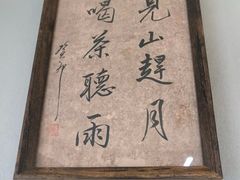 見山趕月
喝茶聽雨